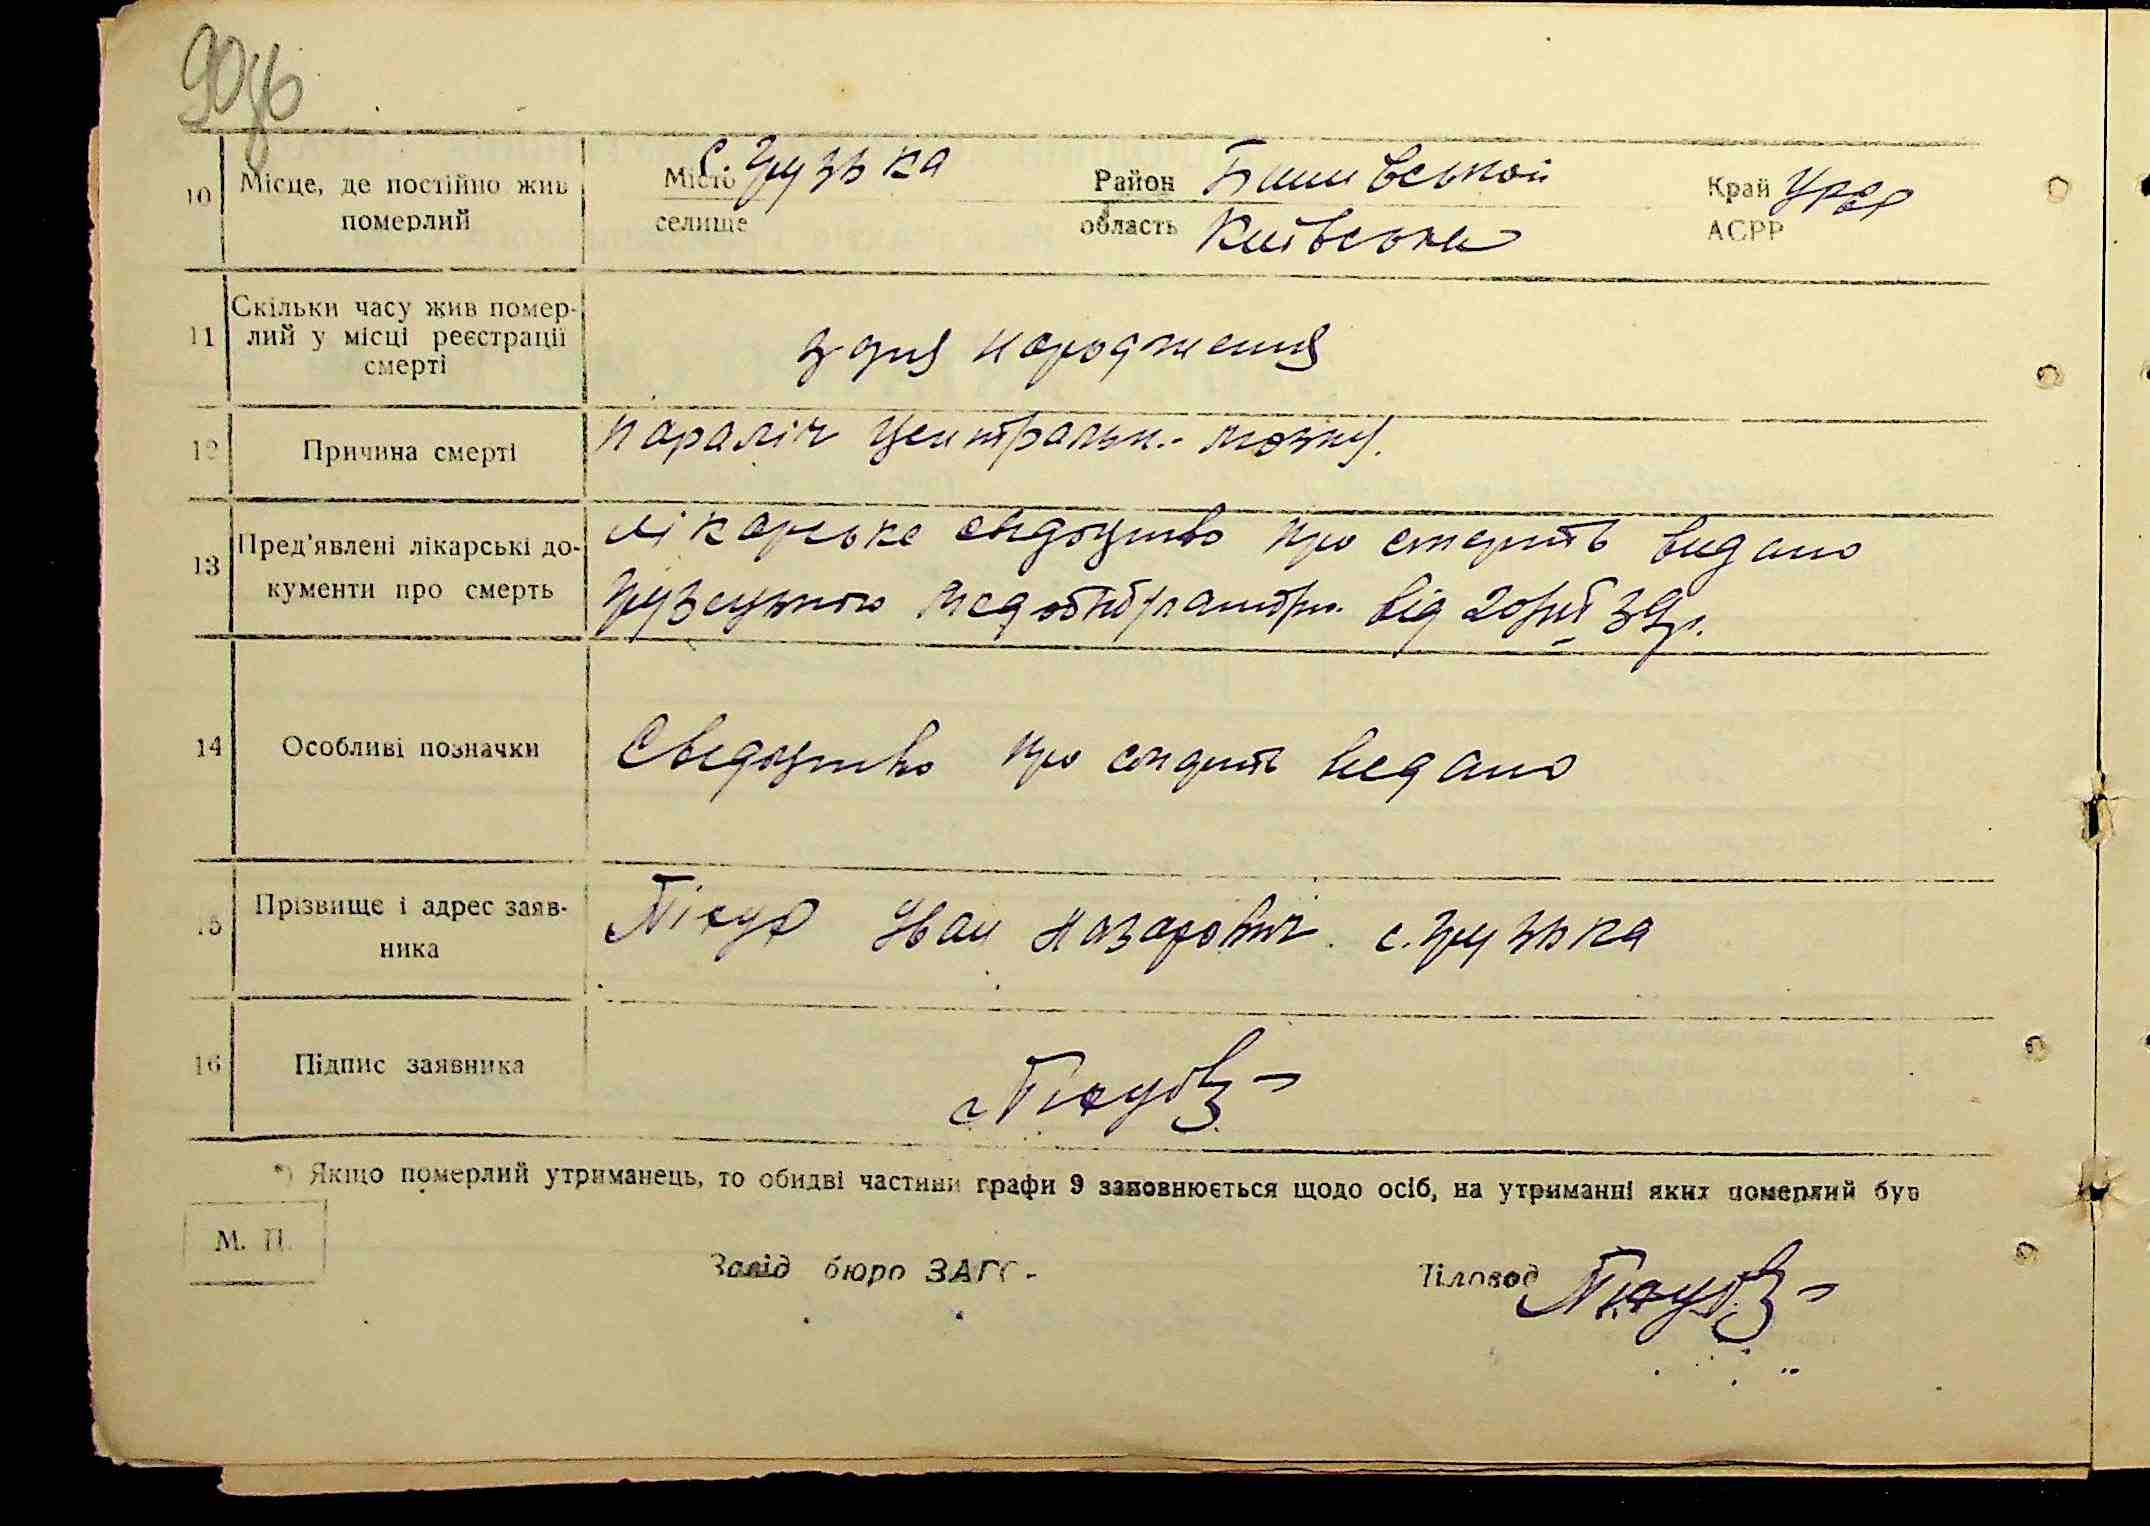 90зв
10 Місце, де постійно жив померлий
Місто селище с. Грузька
Район Бишівський
область Київська
Край АСРР УРСР
11 Скільки часу жив помер-
лий у місці реєстрації
смерті
з дня народження
12 Причина смерті
параліч центральн. мозку.
13 Пред'явлені лікарські до-
кументи про смерть
лікарське свідоцтво про смерть видано
від 20/VII 39р.
14 Особливі позначки
Свідоцтво про смерть видано
15 Прізвище і адрес заяв-
ника
Іван Назарович с. Грузька
16 Підпис заявника
*) Якщо померлий утриманець, то обидві частини графи 9 заповнюється щодо осіб, на утриманні яких померлий був
М. П.
Завід бюро ЗАГС -
Діловод